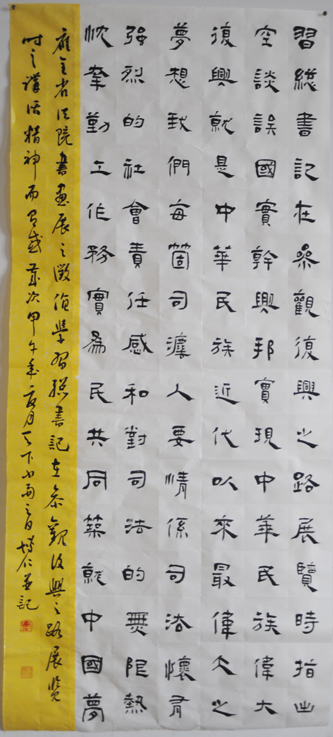 習總書記在參觀復興之路展覽時指出
空談誤國實幹興邦實現中華民族偉大
復興就是中華民族近代以來最偉大之
夢想我們每箇司濾人要情係司法懷着
强烈的社會責任感和對司法的無限熱
忱牽勤工作務實爲民共同築就中國夢
應全省法院書畫展之徵稿學習總書記在参觀復興之路展覽
时之講话精神而有感歲次甲午年夏月天下大雨之日 於仁並記